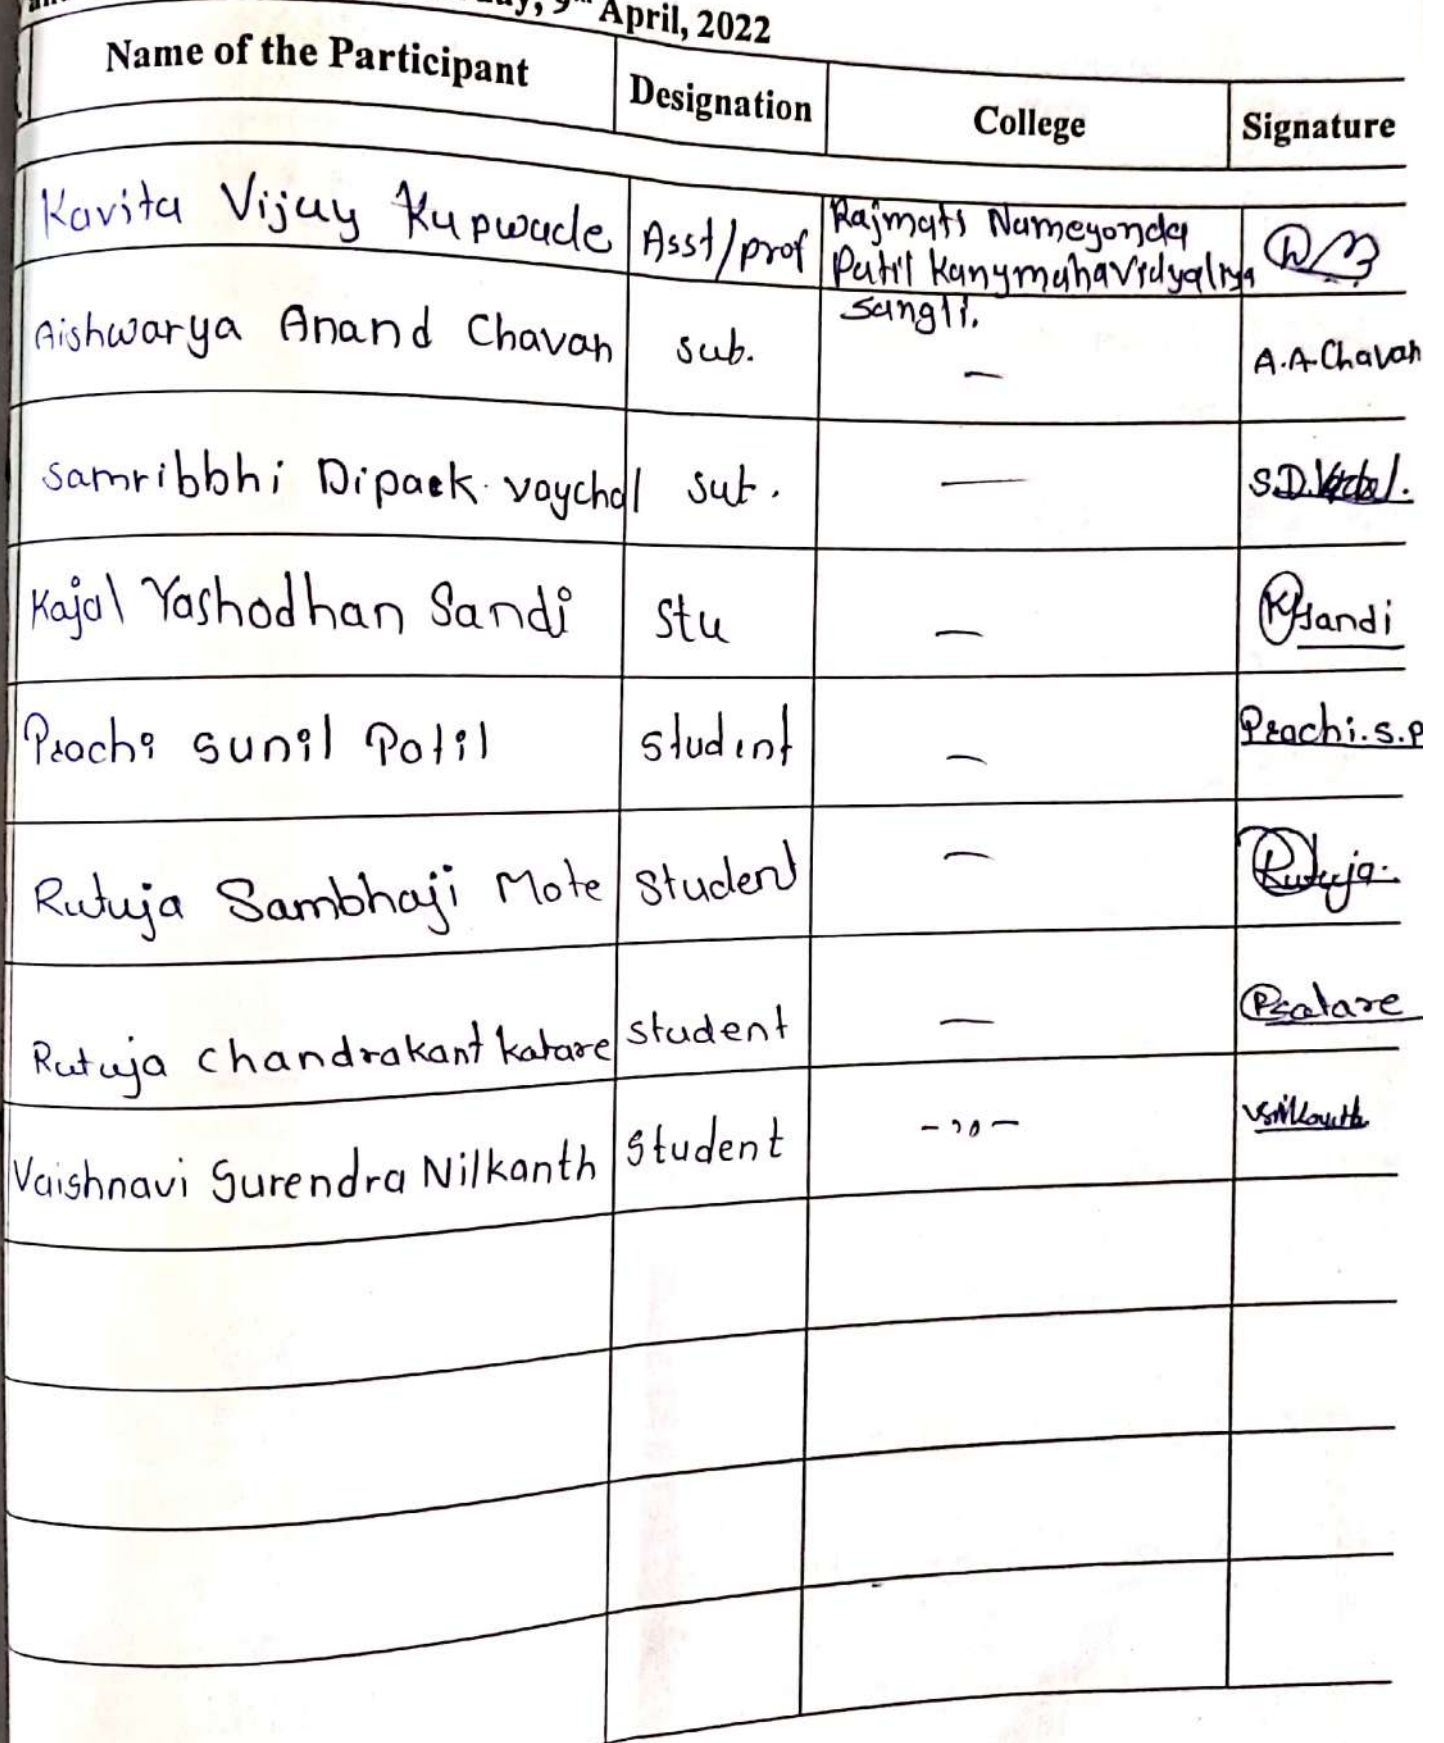 April, 2022
Name of the Participant Designation College Signature
Kavita Vijay Kupwade Asst/prof Rajmats Nameyonda
Patil Kanymahavidyalrya
Sangli.
Aishwarya Anand Chavan sub. — A.A.Chavan
Samribbhi Dipaek voychal sut. — S.D.
Kajal Yashodhan Sandi Stu — KSandi
Prachi sunil Patil student — Prachi.s.p
Rutuja Sambhaji Mote Student — Rutuja.
Rutuja Chandrakant katare student —
Vaishnavi Surendra Nilkanth Student -,,-